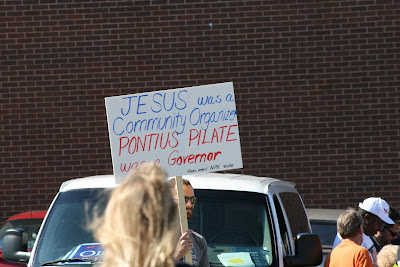 JESUS was a
Community Organizer
PONTIUS PILATE
was a Governor